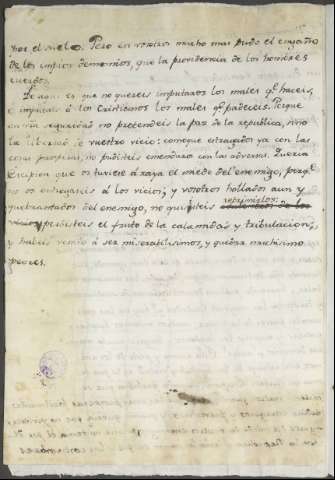 por el suelo. Pero en vosotros mucho mas pudo el engaño
de los impios demonios, que la providencia de los hombres
cuerdos.
De aqui es que no quereis imputaros los males q.e haceis,
é imputais á los Cristianos los males q.e padeceis. Porque
en seguridad no pretendeis la paz de la republica, sino
la libertad de vuestro vicio; como que estragados ya con las
cosas prosperas, no pudisteis enmendaros con las adversas. Queria
Scipion que os tuviese á raya el miedo del enemigo, porq.e
no os entregaseis á los vicios, y vosotros hollados aun y
quebrantados del enemigo, no quisisteis
reprimirlos:
perdisteis el fruto de la calamidad y tribulacion,
y habeis venido á ser miserabilisimos, y quedan muchisimo
peores.